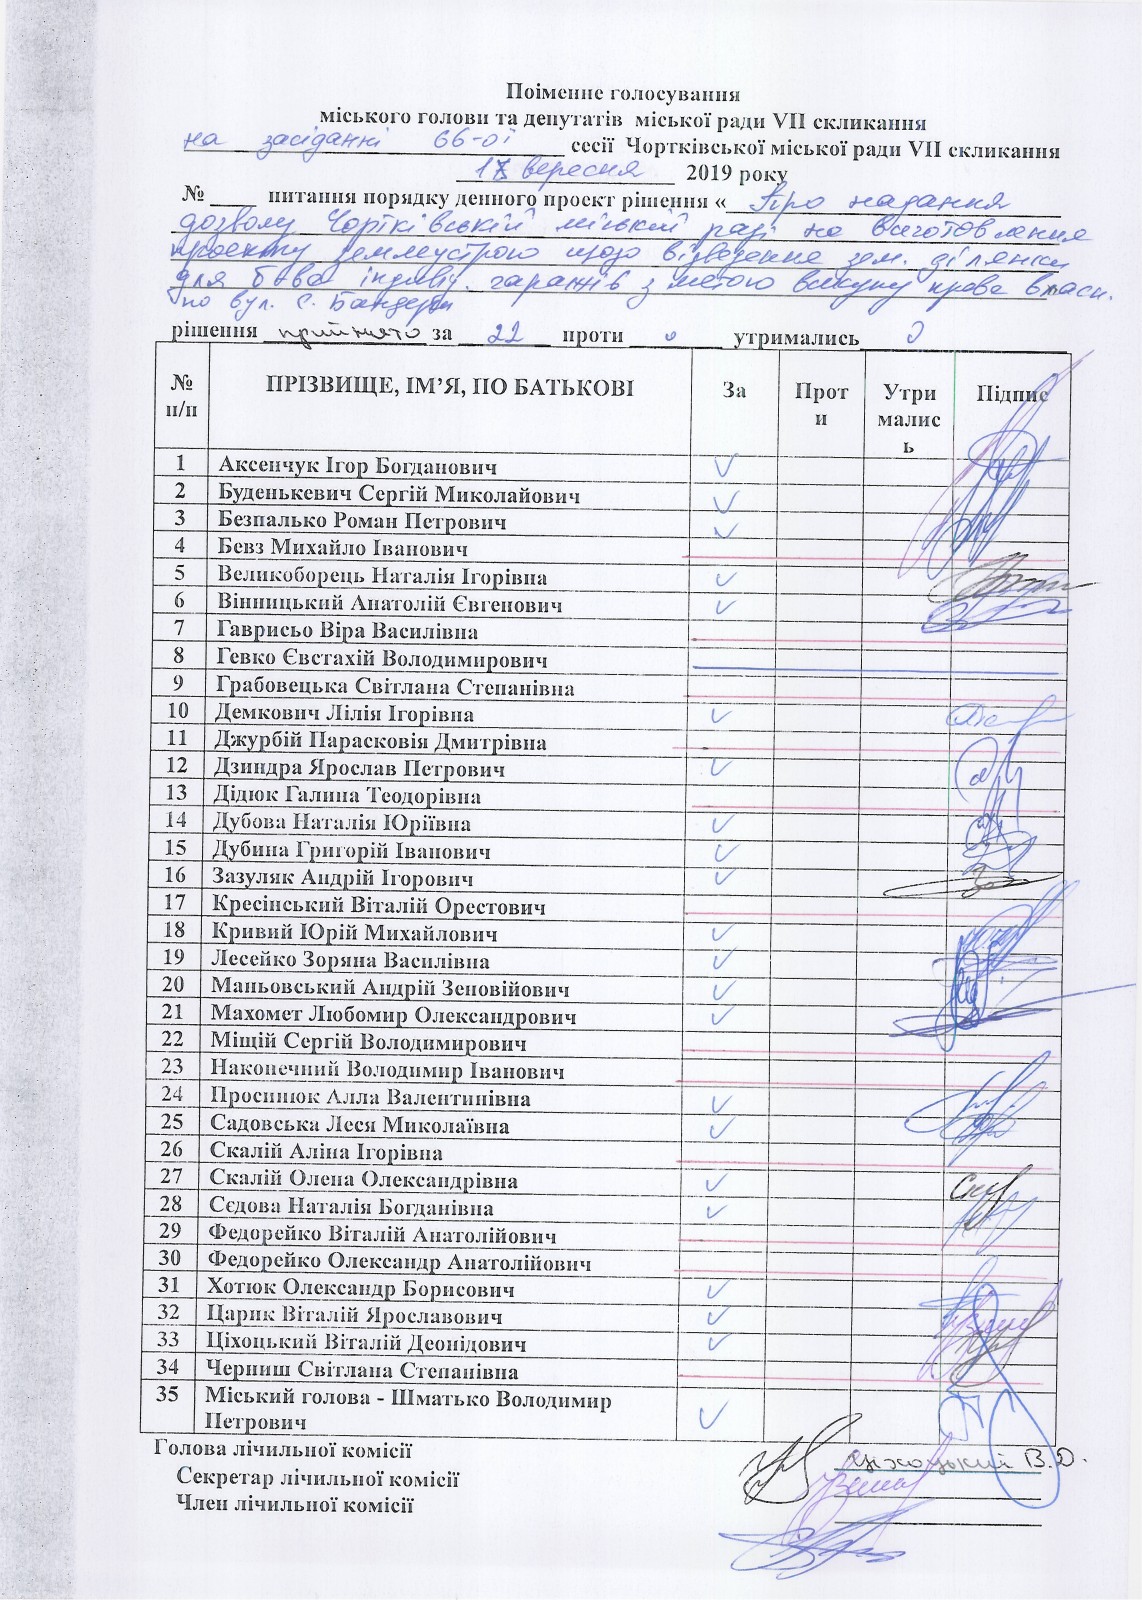 Поіменне голосування
міського голови та депутатів міської ради VII скликання
на засіданні 66-ої сесії Чортківської міської ради VII скликання
17 вересня 2019 року
№ ____ питання порядку денного проєкт рішення « Про надання
дозволу Чортківській міській раді на виготовлення
проекту землеустрою щодо відведення зем. ділянки
для буд. індивід. гаражів з метою викупу права власн.
по вул. С. Бандери
рішення прийнято за 22 проти 0 утримались 0
№ п/п ПРІЗВИЩЕ, ІМ’Я, ПО БАТЬКОВІ За Проти Утрималис ь Підпис
1 Аксенчук Ігор Богданович ✓
2 Буденькевич Сергій Миколайович ✓
3 Безпалько Роман Петрович ✓
4 Бевз Михайло Іванович
5 Великоборець Наталія Ігорівна ✓
6 Вінницький Анатолій Євгенович ✓
7 Гаврисьо Віра Василівна
8 Гевко Євстахій Володимирович
9 Грабовецька Світлана Степанівна
10 Демкович Лілія Ігорівна ✓
11 Джурбій Парасковія Дмитрівна
12 Дзиндра Ярослав Петрович ✓
13 Дідюк Галина Теодорівна
14 Дубова Наталія Юріївна ✓
15 Дубина Григорій Іванович ✓
16 Зазуляк Андрій Ігорович ✓
17 Кресінський Віталій Орестович
18 Кривий Юрій Михайлович ✓
19 Лесейко Зоряна Василівна ✓
20 Маньовський Андрій Зеновійович ✓
21 Махомет Любомир Олександрович ✓
22 Міщій Сергій Володимирович
23 Наконечний Володимир Іванович
24 Просинюк Алла Валентинівна ✓
25 Садовська Леся Миколаївна ✓
26 Скалій Аліна Ігорівна
27 Скалій Олена Олександрівна ✓
28 Сєдова Наталія Богданівна ✓
29 Федорейко Віталій Анатолійович
30 Федорейко Олександр Анатолійович
31 Хотюк Олександр Борисович ✓
32 Царик Віталій Ярославович ✓
33 Ціхоцький Віталій Деонідович ✓
34 Черниш Світлана Степанівна
35 Міський голова - Шматько Володимир
Петрович ✓
Голова лічильної комісії Ціхоцький В.Д.
Секретар лічильної комісії
Член лічильної комісії